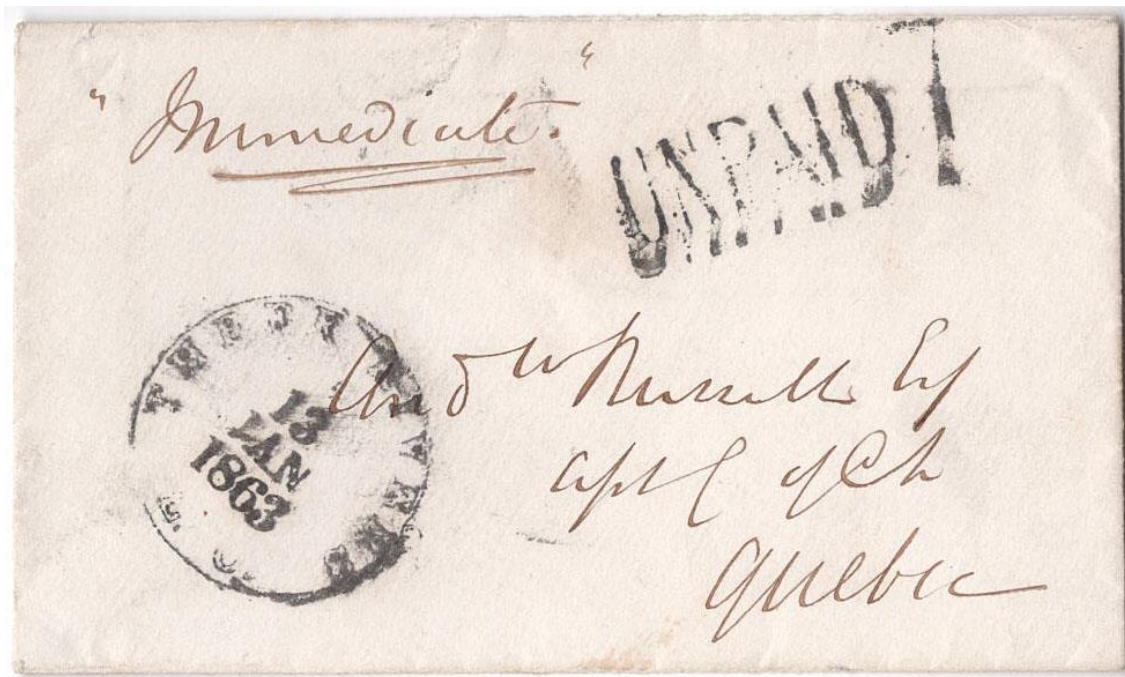 "Immediate."
UNPAID 7
THREE RIVERS
L. C.
13
JAN
1863
And w Russell Esq
Quebec